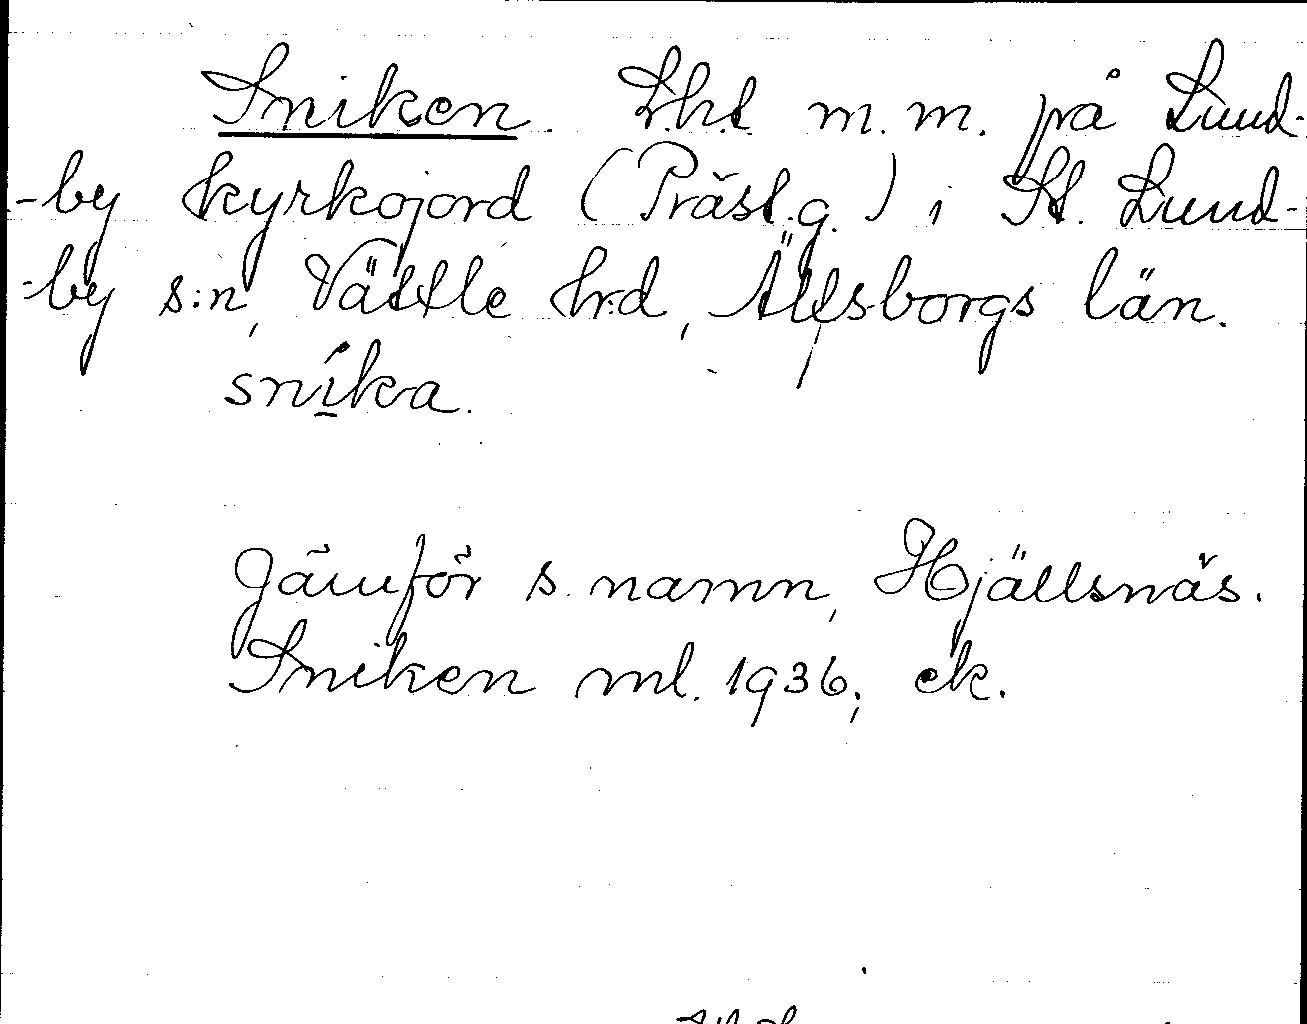 Sniken. L.h.t. m.m. på Lund-
-by kyrkojord (Präst.g.) i St. Lund-
-by s:n, Vättle hrd, Älfsborgs län.
sníka.
Jämför s. namn, Hjällsnäs.
Sniken ml. 1936; ek.